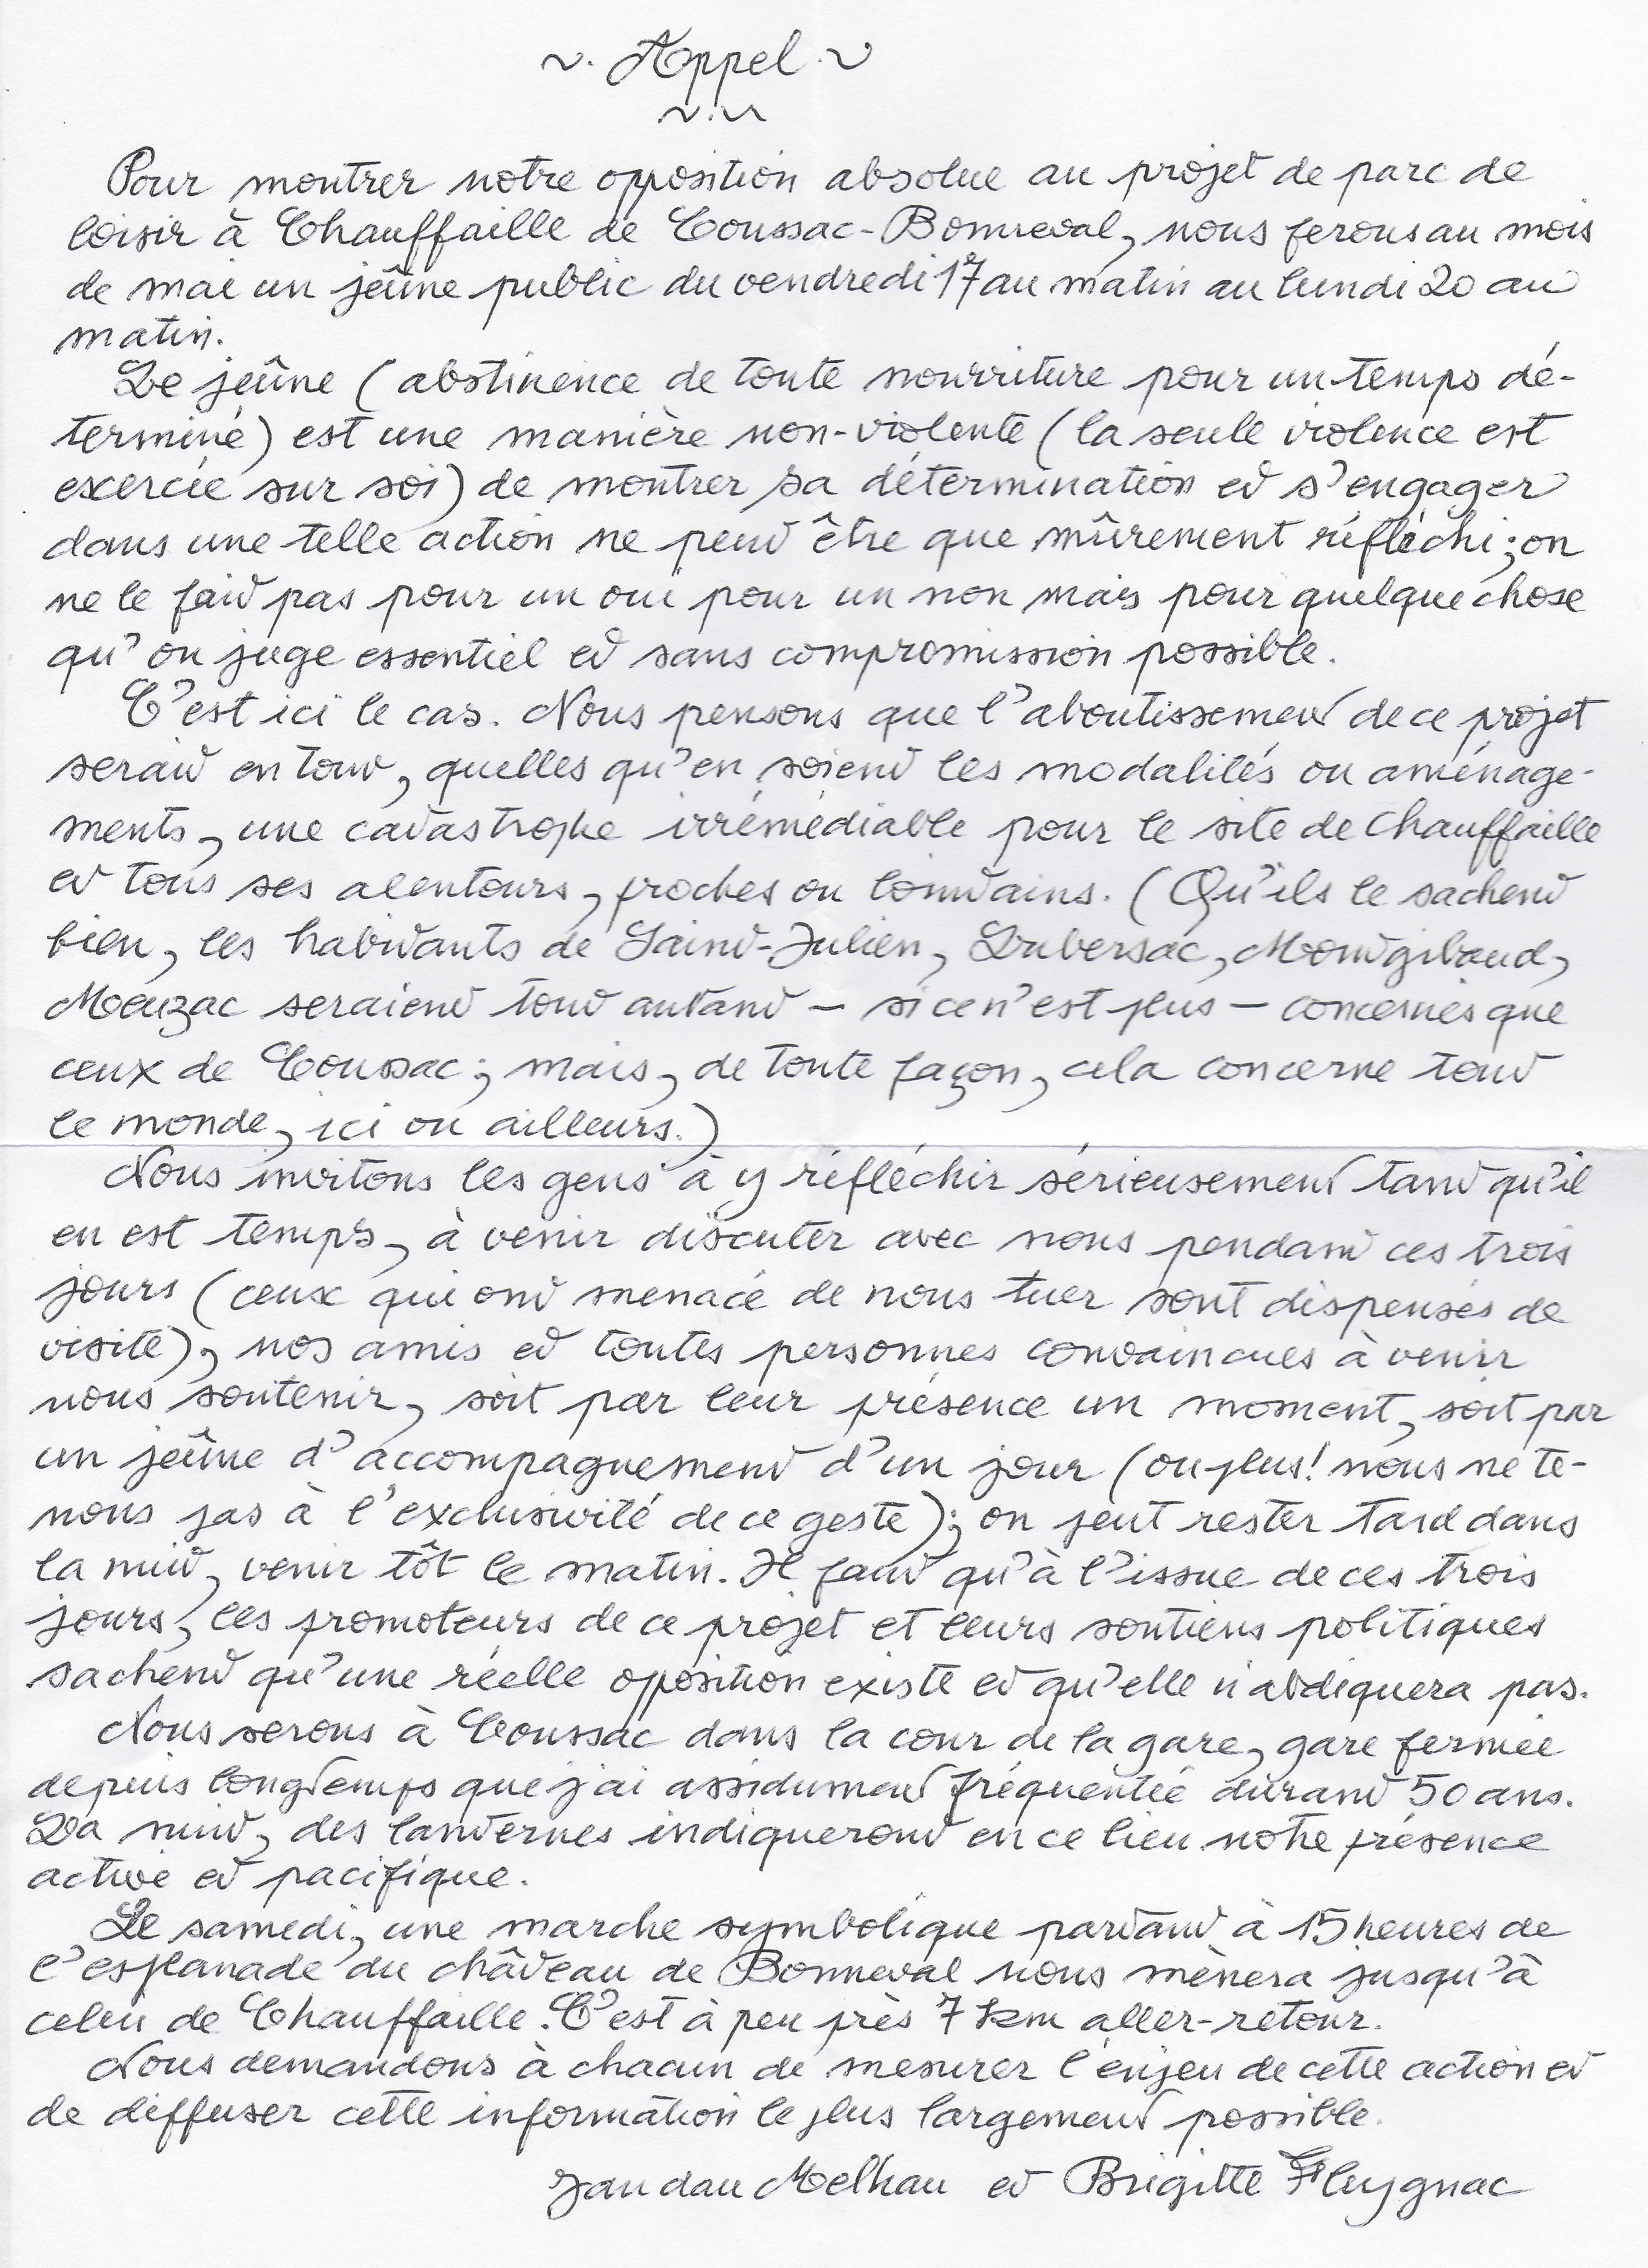 ~. Appel. ~
Pour montrer notre opposition absolue au projet de parc de
loisir à Chauffaille de Coussac-Bonneval, nous ferons au mois
de mai un jeûne public du vendredi 17 au matin au lundi 20 au
matin.
Le jeûne (abstinence de toute nourriture pour un temps dé-
terminé) est une manière non-violente (la seule violence est
exercée sur soi) de montrer sa détermination et s'engager
dans une telle action ne peut être que mûrement réfléchi ; on
ne le fait pas pour un oui pour un non mais pour quelque chose
qu'on juge essentiel et sans compromission possible.
C'est ici le cas. Nous pensons que l'aboutissement de ce projet
serait en tout, quelles qu'en soient les modalités ou aménage-
ments, une catastrophe irrémédiable pour le site de Chauffaille
et tous ses alentours, proches ou lointains. (Qu'ils le sachent
bien, les habitants de Saint-Julien, Lubersac, Montgibaud,
Meuzac seraient tout autant – si ce n'est plus – concernés que
ceux de Coussac ; mais, de toute façon, cela concerne tout
le monde, ici ou ailleurs.)
Nous invitons les gens à y réfléchir sérieusement tant qu'il
en est temps, à venir discuter avec nous pendant ces trois
jours (ceux qui ont menacé de nous tuer sont dispensés de
visite), nos amis et toutes personnes convaincues à venir
nous soutenir, soit par leur présence un moment, soit par
un jeûne d'accompagnement d'un jour (ou plus ! nous ne te-
nons pas à l'exclusivité de ce geste) ; on peut rester tard dans
la nuit, venir tôt le matin. Il faut qu'à l'issue de ces trois
jours, les promoteurs de ce projet et leurs soutiens politiques
sachent qu'une réelle opposition existe et qu'elle n'abdiquera pas.
Nous serons à Coussac dans la cour de la gare, gare fermée
depuis longtemps que j'ai assidument fréquentée durant 50 ans.
La nuit, des lanternes indiqueront en ce lieu notre présence
active et pacifique.
Le samedi, une marche symbolique partant à 15 heures de
l'esplanade du château de Bonneval nous mènera jusqu'à
celui de Chauffaille. C'est à peu près 7 km aller-retour.
Nous demandons à chacun de mesurer l'enjeu de cette action et
de diffuser cette information le plus largement possible.
Jan dau Melhau et Brigitte Fleygnac